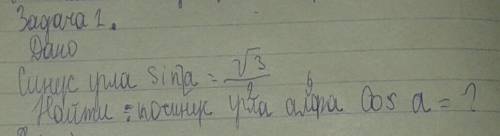 Задача 1.
Дано
Синус угла sin a = √3/2
Найти : косинус угла альфа cos a = ?